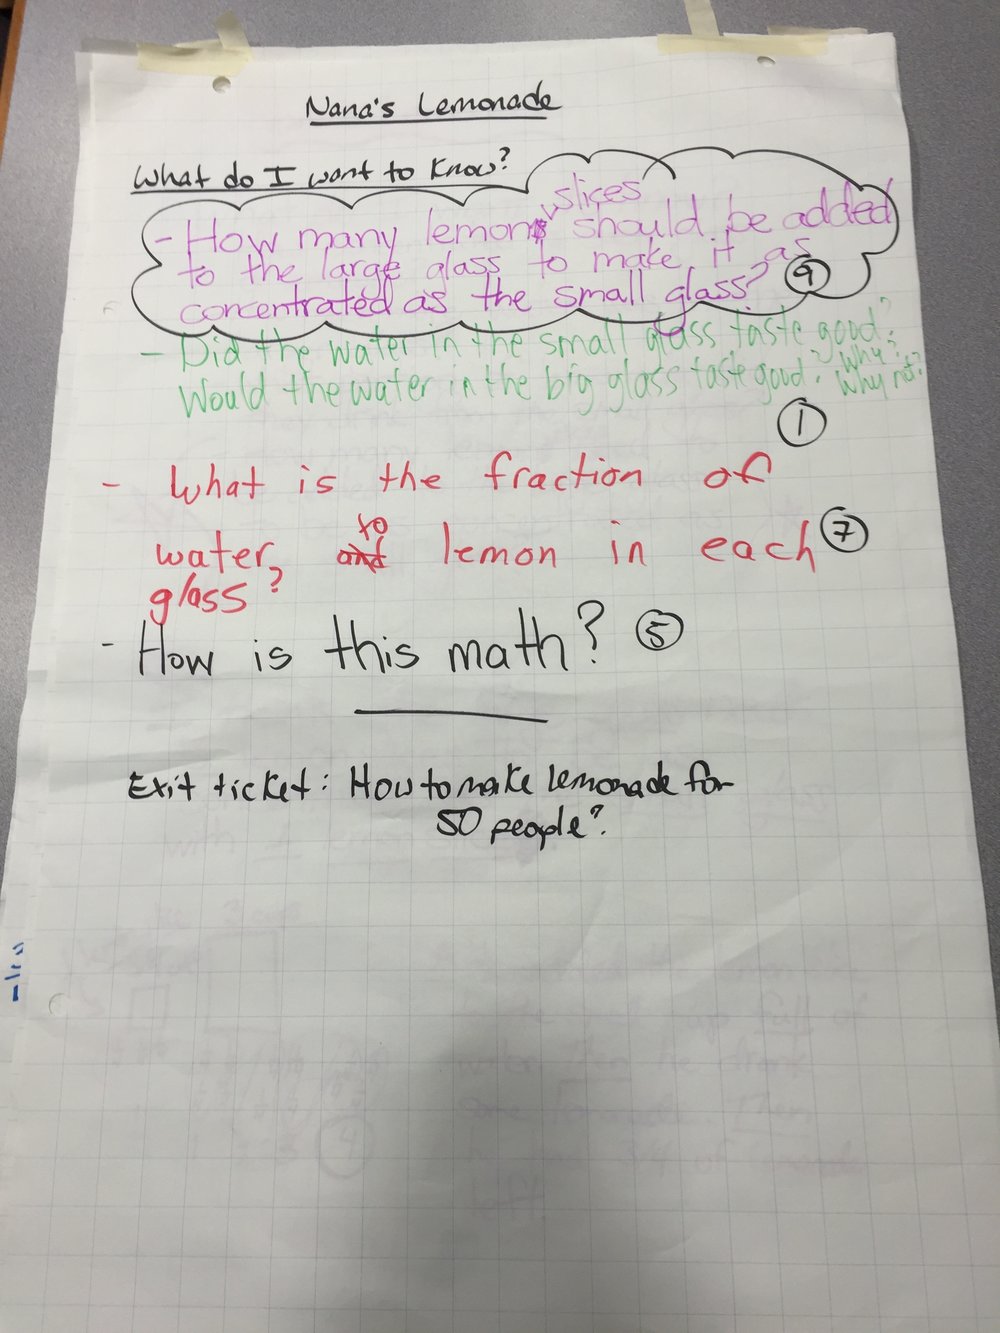 Nana's Lemonade
What do I want to know?
slices
- How many lemon should be added
to the large glass to make it as
concentrated as the small glass? 9
- Did the water in the small glass taste good?
Would the water in the big glass taste good? Why? Why not?
1
- What is the fraction of
to
water, and lemon in each 7
glass?
- How is this math? 5
Exit ticket: How to make lemonade for
50 people?